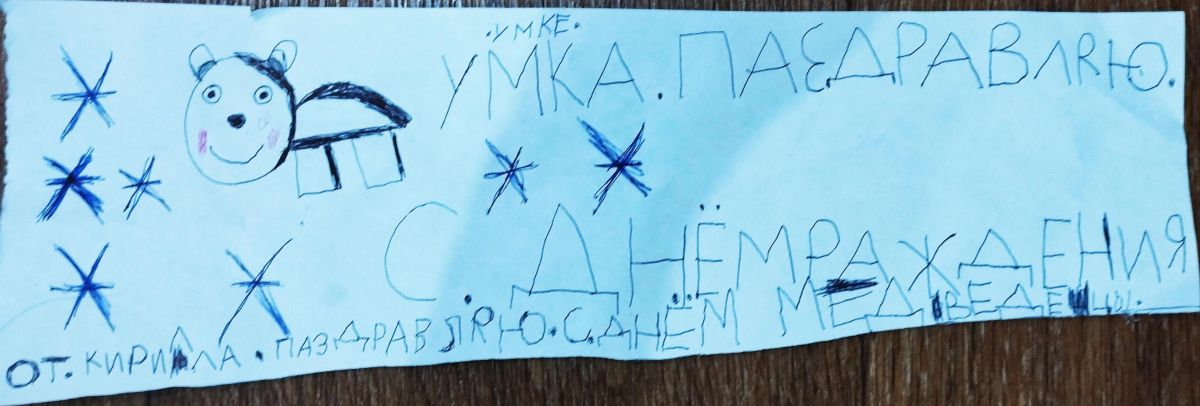 .УМКЕ.
УМКА.ПАЗДРАВЛЯЮ.
С.ДНЁМРАЖДЕНИЯ
ОТ.КИРИЛЛА.ПАЗДРАВЛЯЮ.С.ДНЁМ МЕДВЕДЕЦЫ.